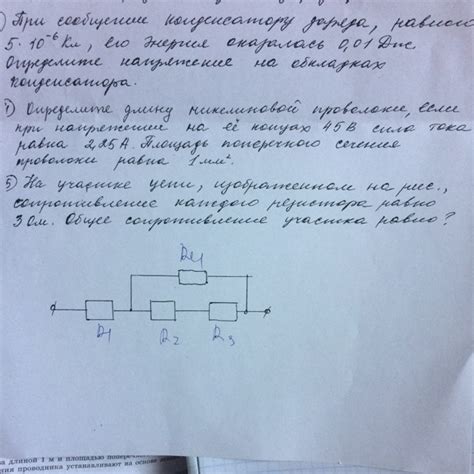 ) При сообщении конденсатору заряда, равного
5·10⁻⁶ Кл, его энергия оказалась 0,01 Дж
Определите напряжение на обкладках
конденсатора.
Определите длину никелиновой проволоки, если
при напряжении на её концах 45В сила тока
равна 2,25А. Площадь поперечного сечения
проволоки равна 1мм².
5) На участке цепи, изображенном на рис.,
сопротивление каждого резистора равно
3 Ом. Общее сопротивление участка равно?
R4
R1
R2
R3
а длиной 1 м и площадью
ния проводника устанавливают на основе